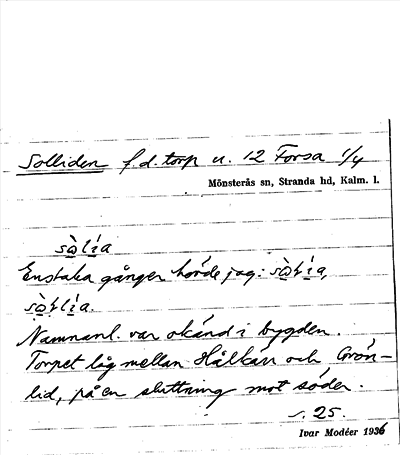 Solliden f.d. torp u. 12 Forsa 1/4
Mönsterås sn, Stranda hd, Kalm. l.
sò̱lía
Enstaka gånger hörde jag:
Namnanl. var okänd i bygden.
Torpet låg mellan Hålkärr och Grön-
lid, på en sluttning mot söder.
25.
Ivar Modéer 1936